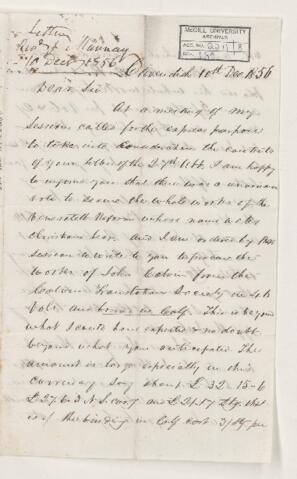 Letter
Revd J. Hannay
10 Dec 1856
McGILL UNIVERSITY
ARCHIVES
ACC. NO.
REF.
Cavendish 10th Dec 1856
Dear Sir
At a meeting of my
Session called for the express purpose
to take into consideration the contents
of your letter of the 27th Ult. I am happy
to inform you that there was a unanimous
vote to secure the whole works of the
Reformer whose name
and I am ordered by the
Session to write to you to procure the
Works of John Calvin from the
Calvin Translation Society in
Vols and bound in Calf. This is beyond
what I could have expected & no doubt
beyond what you anticipated The
amount is large especially in this
currency say about £ 32 15-6
and
is if the binding in Calf cost 3/ per